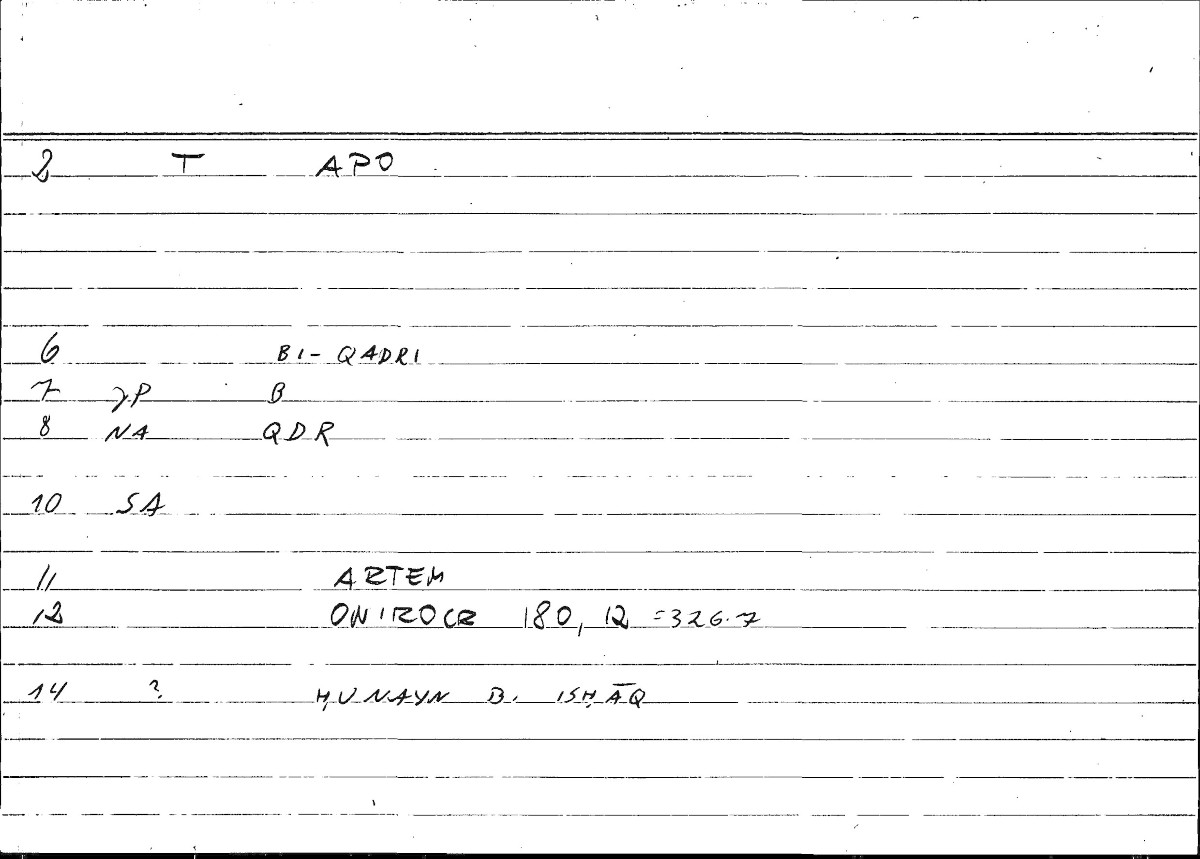 2 T APO
6 BI- QADRI
7 γP B
8 NA QDR
10 SA
11 ARTEM
12 ONIROCR 180, 12 =326.7
14 ? ḤUNAYN B. ISḤĀQ